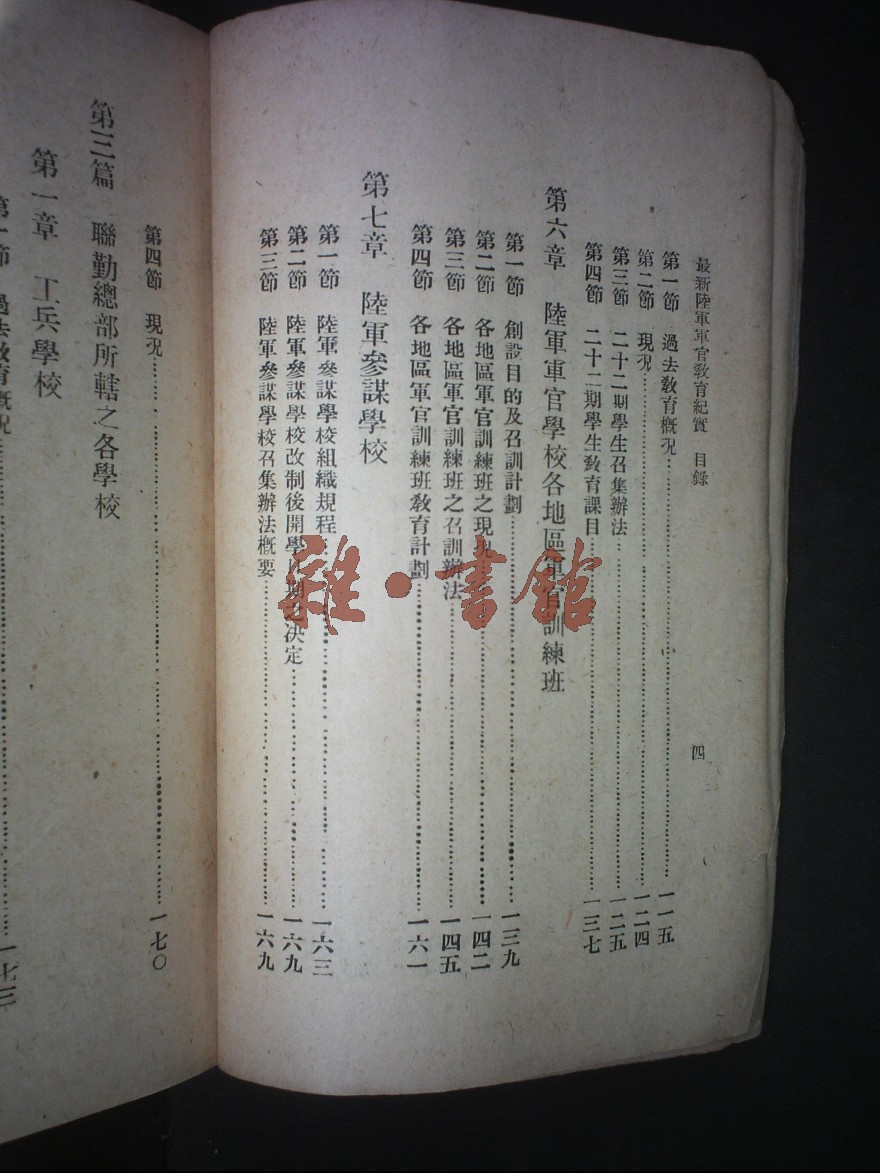 最新陸軍軍官教育紀實　目錄　四
第一節　過去教育概況……一一五
第二節　現況……一二四
第三節　二十二期學生召集辦法……一二五
第四節　二十二期學生教育課目……一三七
第六章　陸軍軍官學校各地區軍官訓練班
第一節　創設目的及召訓計劃……一三九
第二節　各地區軍官訓練班之現況……一四二
第三節　各地區軍官訓練班之召訓辦法……一四五
第四節　各地區軍官訓練班教育計劃……一六一
第七章　陸軍參謀學校
第一節　陸軍參謀學校組織規程……一六三
第二節　陸軍參謀學校改制後開學日期之決定……一六九
第三節　陸軍參謀學校召集辦法概要……一六九
第四節　現況……一七〇
第三篇　聯勤總部所轄之各學校
第一章　工兵學校
第一節　過去教育概況……一七三
雜·書館